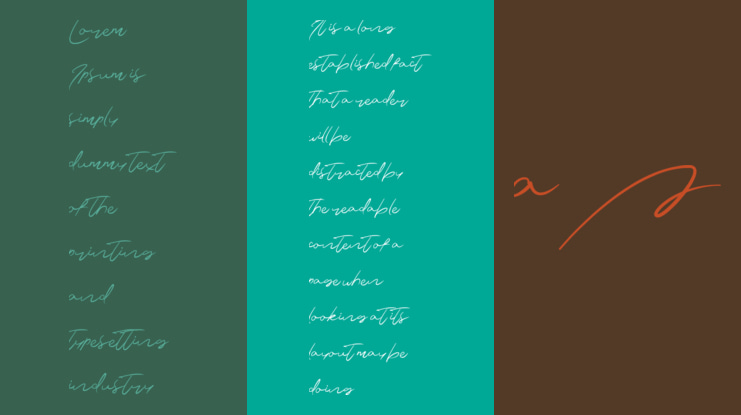 Lorem
Ipsum is
simply
dummy text
of the
printing
and
typesetting
industry
It is a long
established fact
that a reader
will be
distracted by
the readable
content of a
page when
looking at its
layout may be
doing
a